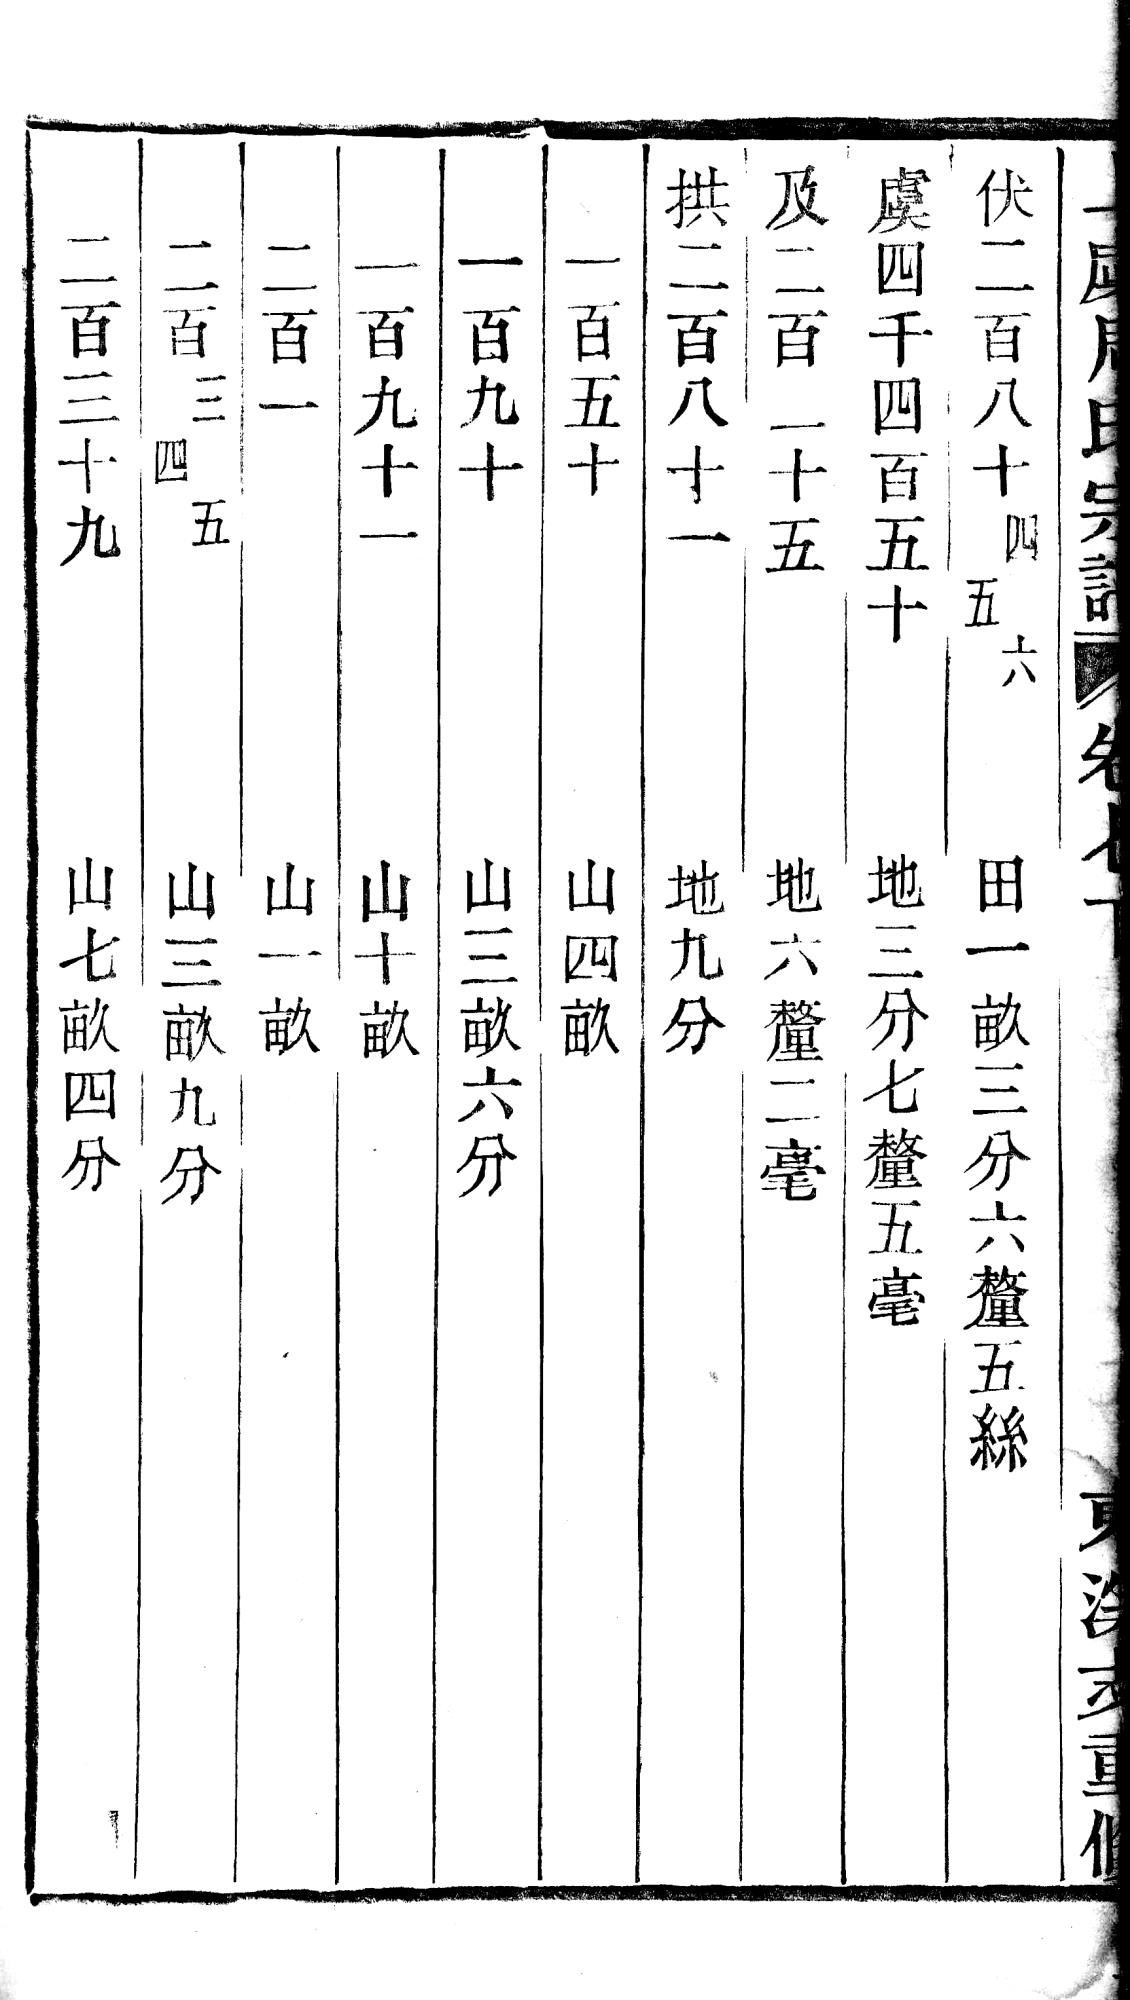 氏宗譜 卷七下
伏二百八十四五六 田一畝三分六釐五絲
虞四千四百五十 地三分七釐五毫
及二百一十五 地六釐二毫
拱二百八十一 地九分
一百五十 山四畝
一百九十 山三畝六分
一百九十一 山十畝
二百一 山一畝
二百三四五 山三畝九分
二百三十九 山七畝四分